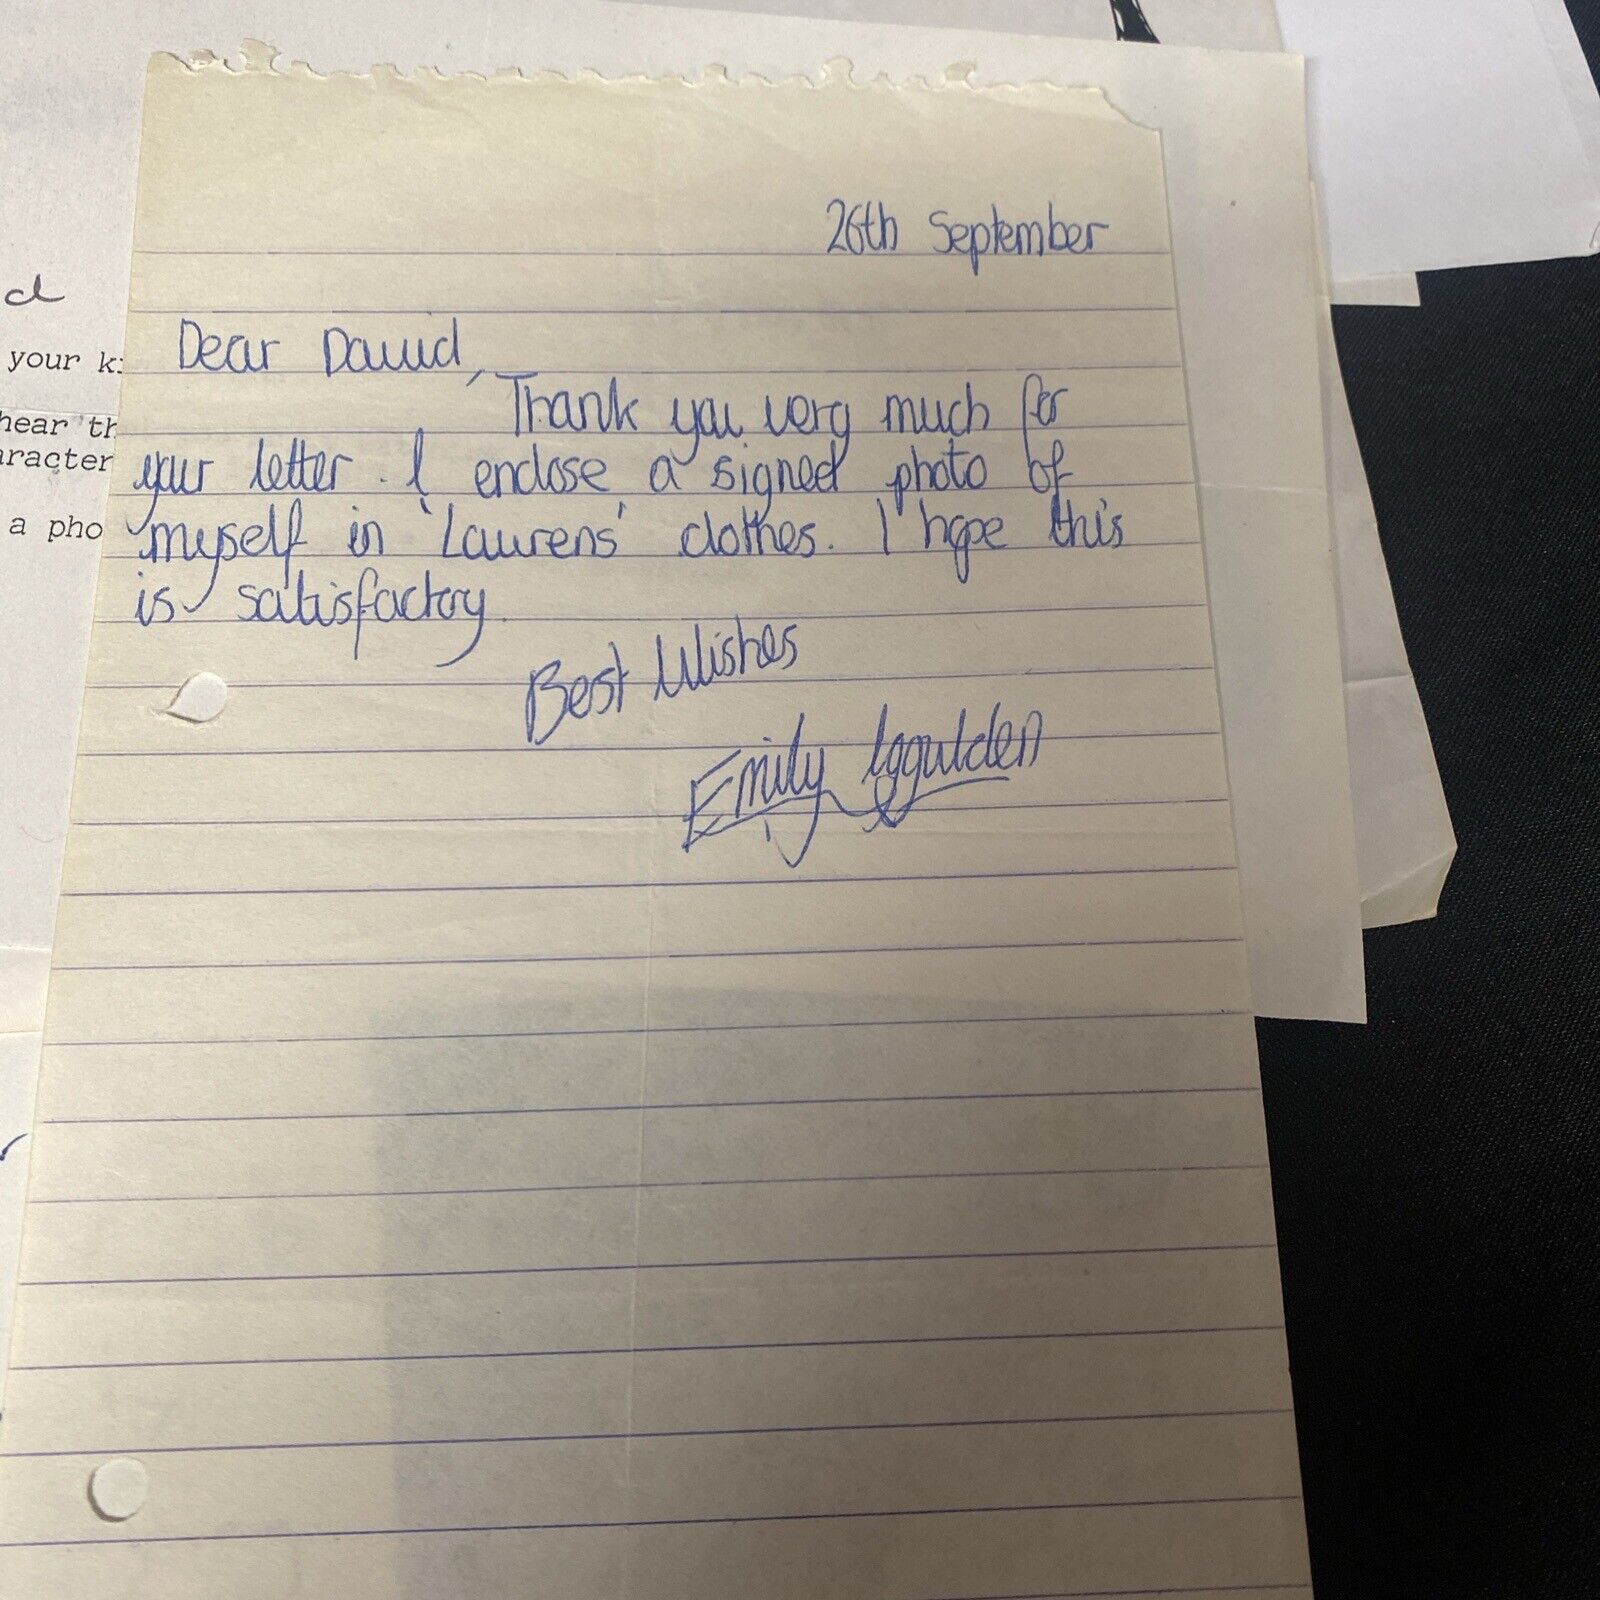 26th September
Dear David,
Thank you very much for
your letter. I enclose a signed photo of
myself in 'Laurens' clothes. I hope this
is satisfactory.
Best Wishes
Emily Iggulden
d
your k
hear th
aracter
a pho